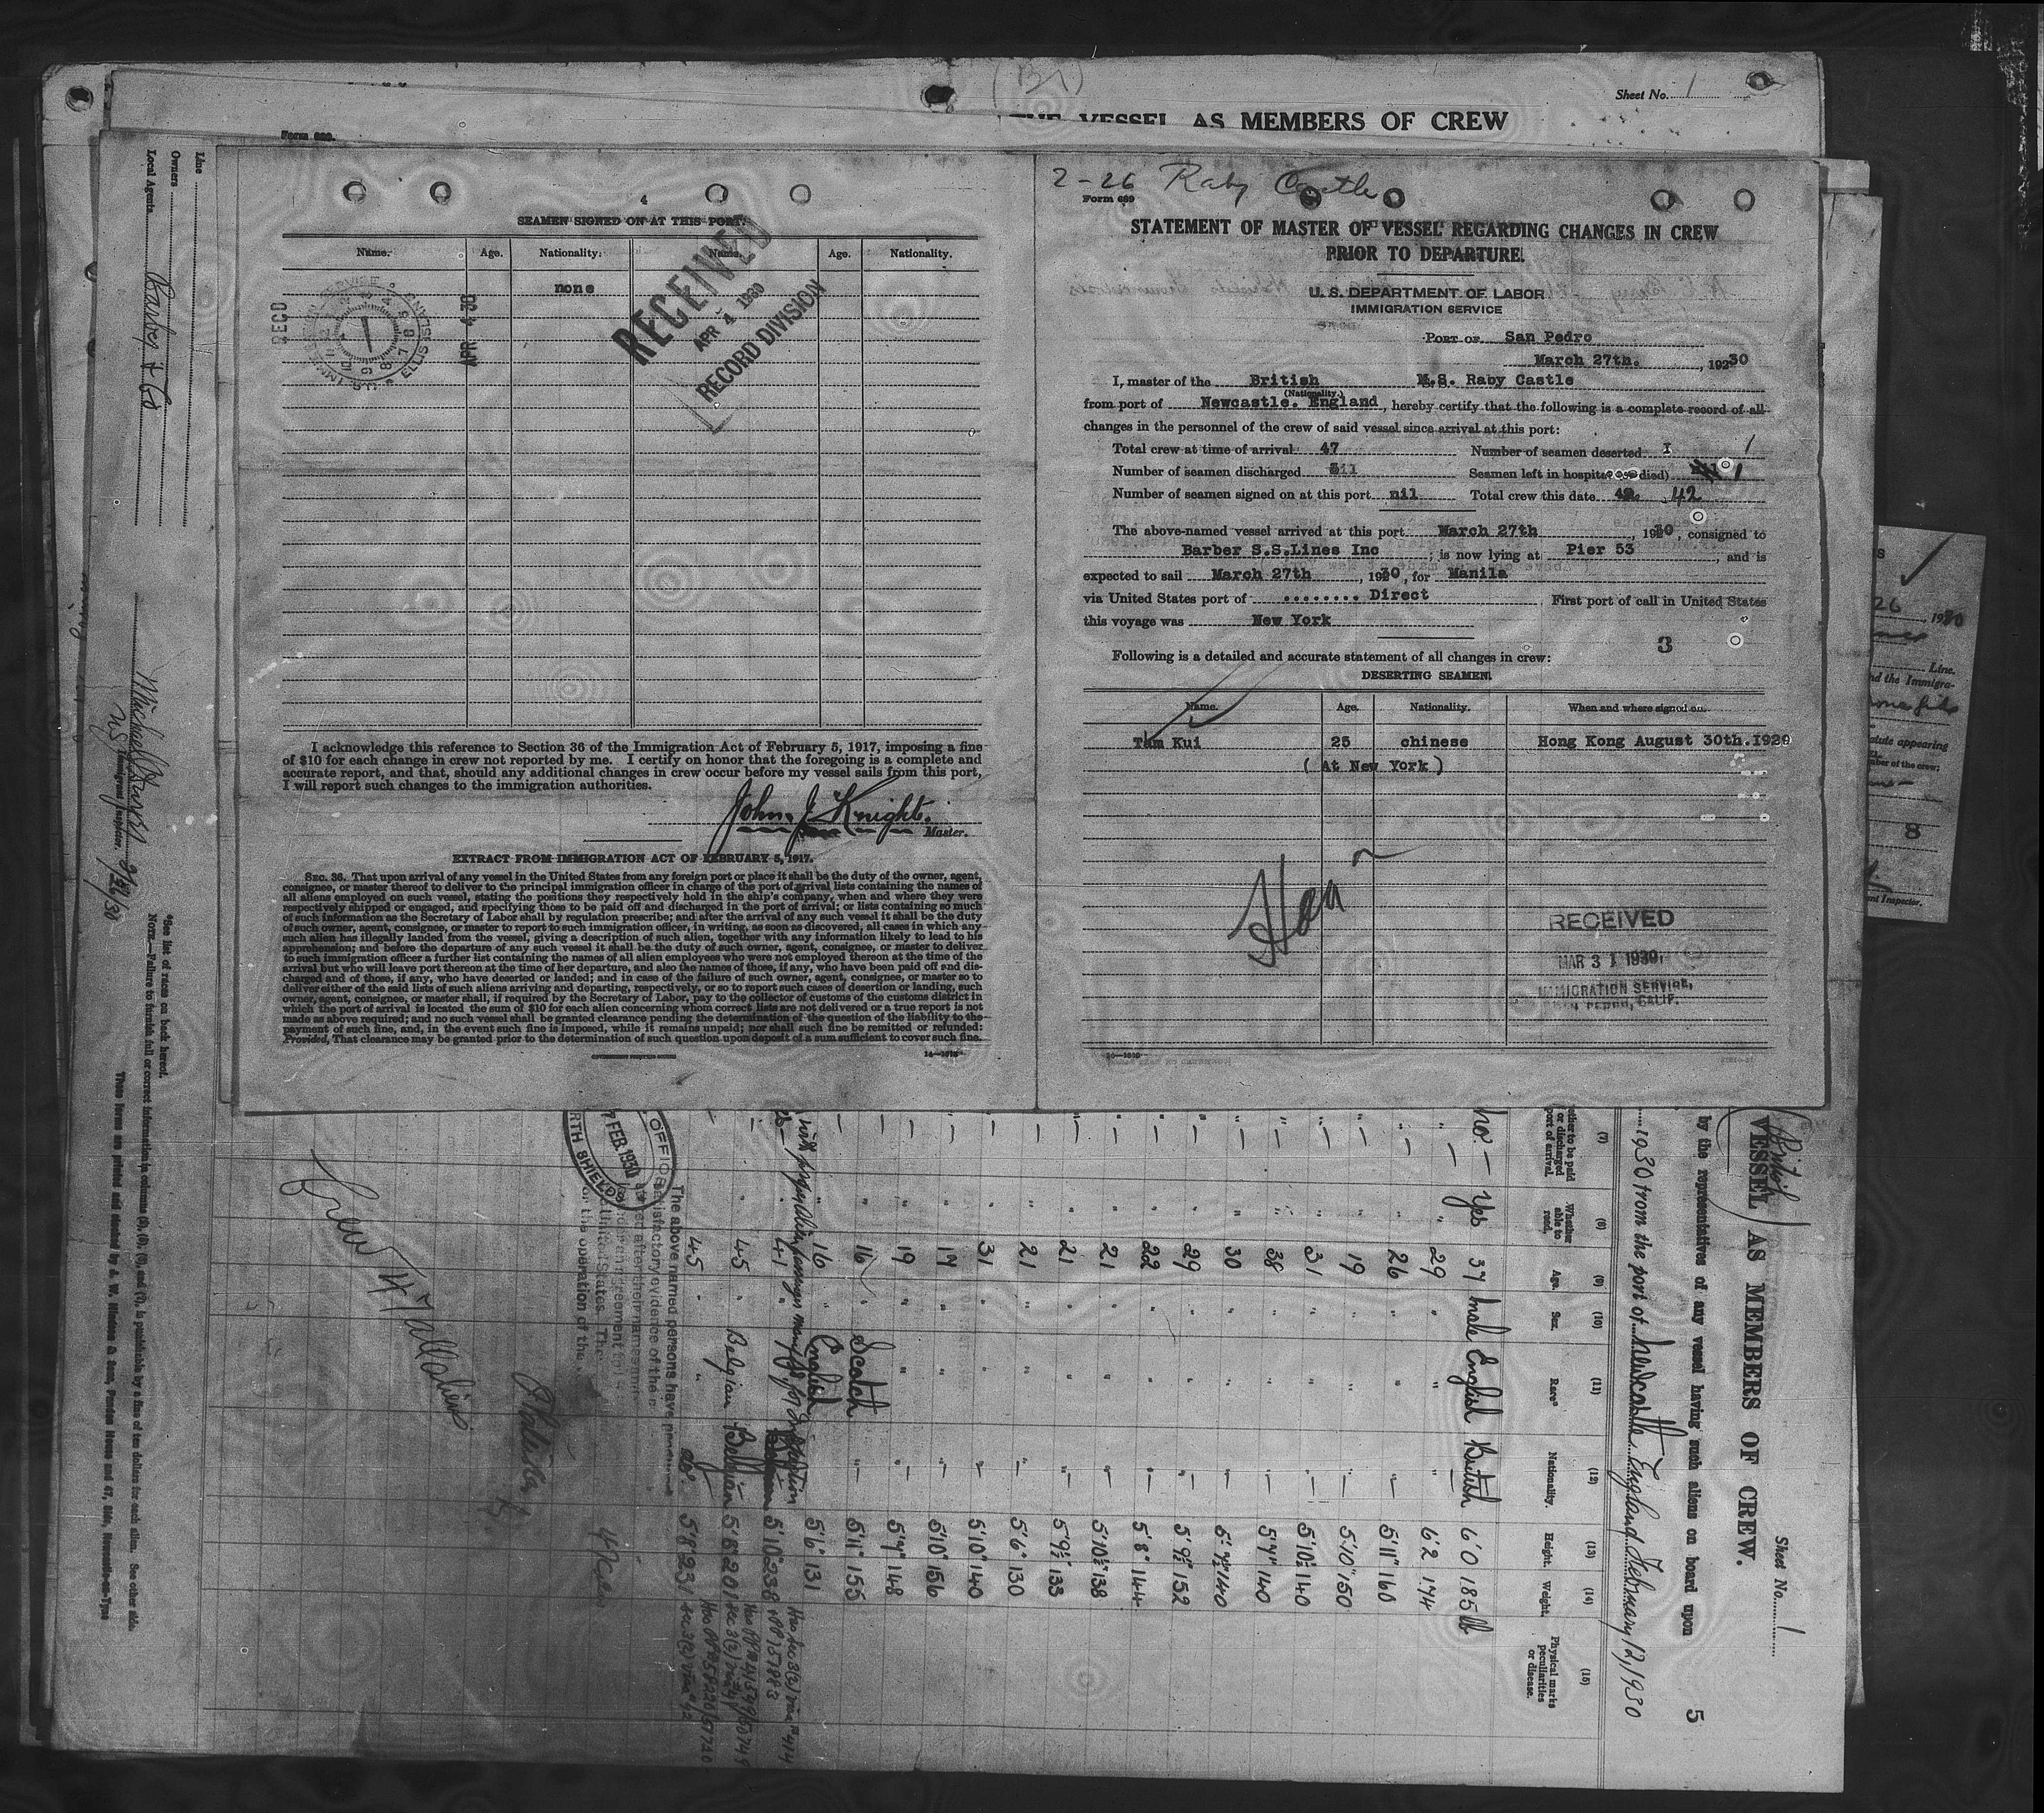 (B7)
Sheet No. 1
THE VESSEL AS MEMBERS OF CREW
Form 689.
4
SEAMEN SIGNED ON AT THIS PORT.
Name. Age. Nationality. Name. Age. Nationality.
none
RECD
APR 4 30
ELLIS ISLAND
RECEIVED
APR 4 1930
RECORD DIVISION
I acknowledge this reference to Section 36 of the Immigration Act of February 5, 1917, imposing a fine
of $10 for each change in crew not reported by me. I certify on honor that the foregoing is a complete and
accurate report, and that, should any additional changes in crew occur before my vessel sails from this port,
I will report such changes to the immigration authorities.
John. J Knight.
Master.
EXTRACT FROM IMMIGRATION ACT OF FEBRUARY 5, 1917.
SEC. 36. That upon arrival of any vessel in the United States from any foreign port or place it shall be the duty of the owner, agent,
consignee, or master thereof to deliver to the principal immigration officer in charge of the port of arrival lists containing the names of
all aliens employed on such vessel, stating the positions they respectively hold in the ship's company, when and where they were
respectively shipped or engaged, and specifying those to be paid off and discharged in the port of arrival; or lists containing so much
of such information as the Secretary of Labor shall by regulation prescribe; and after the arrival of any such vessel it shall be the duty
of such owner, agent, consignee, or master to report to such immigration officer, in writing, as soon as discovered, all cases in which any
such alien has illegally landed from the vessel, giving a description of such alien, together with any information likely to lead to his
apprehension; and before the departure of any such vessel it shall be the duty of such owner, agent, consignee, or master to deliver
to such immigration officer a further list containing the names of all alien employees who were not employed thereon at the time of the
arrival but who will leave port thereon at the time of her departure, and also the names of those, if any, who have been paid off and dis-
charged and of those, if any, who have deserted or landed; and in case of the failure of such owner, agent, consignee, or master so to
deliver either of the said lists of such aliens arriving and departing, respectively, or so to report such cases of desertion or landing, such
owner, agent, consignee, or master shall, if required by the Secretary of Labor, pay to the collector of customs of the customs district in
which the port of arrival is located the sum of $10 for each alien concerning whom correct lists are not delivered or a true report is not
made as above required; and no such vessel shall be granted clearance pending the determination of the question of the liability to the
payment of such fine, and, in the event such fine is imposed, while it remains unpaid; nor shall such fine be remitted or refunded:
Provided, That clearance may be granted prior to the determination of such question upon deposit of a sum sufficient to cover such fine.
2-26 Raby Castle
Form 689
STATEMENT OF MASTER OF VESSEL REGARDING CHANGES IN CREW
PRIOR TO DEPARTURE.
U. S. DEPARTMENT OF LABOR
IMMIGRATION SERVICE
PORT OF San Pedro
March 27th. , 19230
I, master of the British M.S. Raby Castle
(Nationality.)
from port of Newcastle. England, hereby certify that the following is a complete record of all
changes in the personnel of the crew of said vessel since arrival at this port:
Total crew at time of arrival 47 Number of seamen deserted I 1
Number of seamen discharged nil Seamen left in hospital (or died) nil 1
Number of seamen signed on at this port nil Total crew this date 42
The above-named vessel arrived at this port March 27th , 1930, consigned to
Barber S.S.Lines Inc ; is now lying at Pier 53 , and is
expected to sail March 27th , 1930, for Manila
via United States port of ........ Direct First port of call in United States
this voyage was New York
3
Following is a detailed and accurate statement of all changes in crew:
DESERTING SEAMEN.
Name. Age. Nationality. When and where signed on.
Tam Kui 25 chinese Hong Kong August 30th.1929
( At New York )
RECEIVED
MAR 31 1930
IMMIGRATION SERVICE,
SAN PEDRO, CALIF.
26 1930
Line.
nd the Immigra-
atute appearing
mber of the crew;
8
nt Inspector.
Line
Owners
Local Agents Barber & Co
Immigrant Inspector.
*See list of races on back hereof.
NOTE.—Failure to furnish full or correct information in columns (5), (6), and (7), is punishable by a fine of ten dollars for each alien. See other side.
Sheet No. 1
(British)
VESSEL AS MEMBERS OF CREW.
5
by the representatives of any vessel having such aliens on board upon
1930 from the port of Newcastle England February 12, 1930
(7) (8) (9) (10) (11) (12) (13) (14) (15)
Whether to be paid or discharged port of arrival Whether able to read. Age. Sex. Race* Nationality. Height. Weight. Physical marks peculiarities or disease.
no — Yes 37 male English British 6'0 185 lb
29 6'2 174
26 5'11" 160
19 5'10" 150
31 5'10½ 140
38 5'7" 140
30 5'7½ 140
29 5'9½ 152
22 5'8" 144
21 5'10½ 138
21 5'9½ 133
21 5'6" 130
31 5'10" 140
17 5'10" 156
19 5'7" 148
16 Scotch 5'11" 155
16 English 5'6" 131
41 5'10 238
45 Belgian Belgian 5'8 201
45 do. 5'8 231
The above named persons have
satisfactory evidence of the
7 FEB. 1930
NORTH SHIELDS